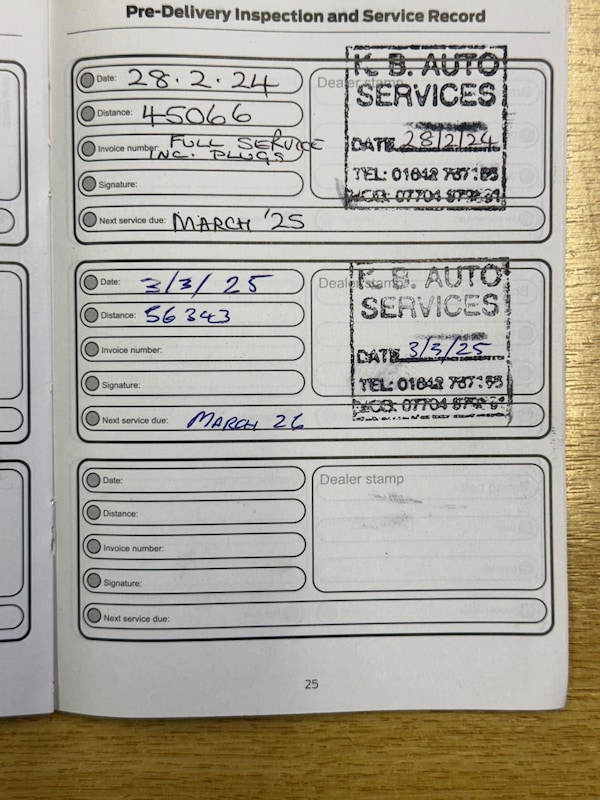 Pre-Delivery Inspection and Service Record
Date: 28.2.24
Distance: 45066
Invoice number: FULL SERVICE
INC. PLUGS
Signature:
Next service due: MARCH '25
Dealer
K. B. AUTO
SERVICES
DATE 28/2/24
TEL: 01642 767155
Date: 3/3/25
Distance: 56343
Invoice number:
Signature:
Next service due: MARCH 26
Dealer stamp
K. B. AUTO
SERVICES
DATE 3/3/25
TEL: 01642 767155
Date:
Distance:
Invoice number:
Signature:
Next service due:
Dealer stamp
25